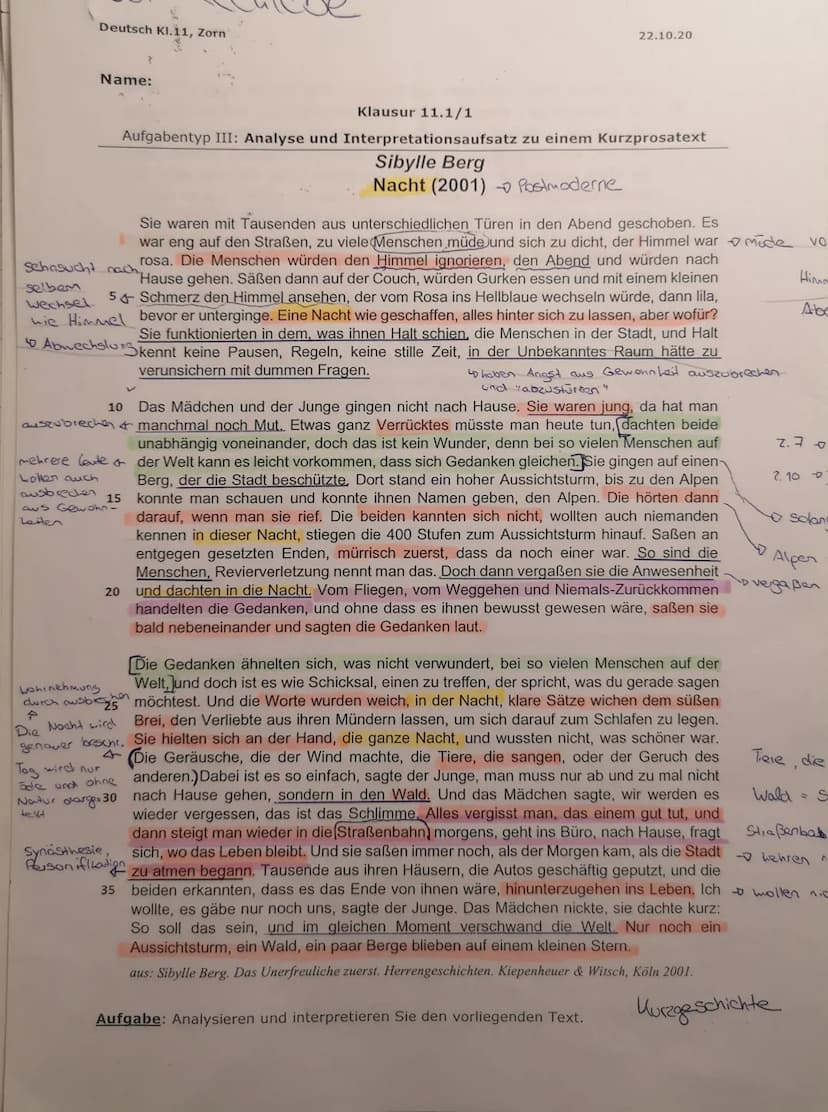 Deutsch Kl.11, Zorn
22.10.20
Name:
Klausur 11.1/1
Aufgabentyp III: Analyse und Interpretationsaufsatz zu einem Kurzprosatext
Sibylle Berg
Nacht (2001) → Postmoderne
Sie waren mit Tausenden aus unterschiedlichen Türen in den Abend geschoben. Es
war eng auf den Straßen, zu viele Menschen müde und sich zu dicht, der Himmel war → müde
rosa. Die Menschen würden den Himmel ignorieren, den Abend und würden nach
Sehnsucht nach
Hause gehen. Säßen dann auf der Couch, würden Gurken essen und mit einem kleinen
selbem
5 Schmerz den Himmel ansehen, der vom Rosa ins Hellblaue wechseln würde, dann lila,
Wechsel
wie Himmel
bevor er unterginge. Eine Nacht wie geschaffen, alles hinter sich zu lassen, aber wofür?
Sie funktionierten in dem, was ihnen Halt schien, die Menschen in der Stadt, und Halt
↳ Abwechslung
kennt keine Pausen, Regeln, keine stille Zeit, in der Unbekanntes Raum hätte zu
verunsichern mit dummen Fragen.
↳ haben Angst aus Gewohnheit auszubrechen
und "abzustürzen"
10 Das Mädchen und der Junge gingen nicht nach Hause. Sie waren jung, da hat man
auszubrechen
manchmal noch Mut. Etwas ganz Verrücktes müsste man heute tun, dachten beide
unabhängig voneinander, doch das ist kein Wunder, denn bei so vielen Menschen auf
z.7
mehrere Leute
der Welt kann es leicht vorkommen, dass sich Gedanken gleichen. Sie gingen auf einen
wollen auch
Berg, der die Stadt beschützte. Dort stand ein hoher Aussichtsturm, bis zu den Alpen
z.10
ausbrechen
15 konnte man schauen und konnte ihnen Namen geben, den Alpen. Die hörten dann
aus Gewohn-
heiten
darauf, wenn man sie rief. Die beiden kannten sich nicht, wollten auch niemanden
kennen in dieser Nacht, stiegen die 400 Stufen zum Aussichtsturm hinauf. Saßen an
entgegen gesetzten Enden, mürrisch zuerst, dass da noch einer war. So sind die
Alpen
Menschen, Revierverletzung nennt man das. Doch dann vergaßen sie die Anwesenheit
vergaßen
20 und dachten in die Nacht. Vom Fliegen, vom Weggehen und Niemals-Zurückkommen
handelten die Gedanken, und ohne dass es ihnen bewusst gewesen wäre, saßen sie
bald nebeneinander und sagten die Gedanken laut.
Die Gedanken ähnelten sich, was nicht verwundert, bei so vielen Menschen auf der
Welt, und doch ist es wie Schicksal, einen zu treffen, der spricht, was du gerade sagen
durch ausbrechen
25 möchtest. Und die Worte wurden weich, in der Nacht, klare Sätze wichen dem süßen
Brei, den Verliebte aus ihren Mündern lassen, um sich darauf zum Schlafen zu legen.
Die Nacht wird
genauer beschr.
Sie hielten sich an der Hand, die ganze Nacht, und wussten nicht, was schöner war.
Die Geräusche, die der Wind machte, die Tiere, die sangen, oder der Geruch des
Tiere, die
Tag wird nur
anderen. Dabei ist es so einfach, sagte der Junge, man muss nur ab und zu mal nicht
öde und ohne
30 nach Hause gehen, sondern in den Wald. Und das Mädchen sagte, wir werden es
Wald = S
Natur darge-
stellt
wieder vergessen, das ist das Schlimme. Alles vergisst man, das einem gut tut, und
dann steigt man wieder in die Straßenbahn morgens, geht ins Büro, nach Hause, fragt
Straßenbah
Synästhesie,
sich, wo das Leben bleibt. Und sie saßen immer noch, als der Morgen kam, als die Stadt
Personifikation
zu atmen begann. Tausende aus ihren Häusern, die Autos geschäftig geputzt, und die
35 beiden erkannten, dass es das Ende von ihnen wäre, hinunterzugehen ins Leben. Ich
→ wollen
wollte, es gäbe nur noch uns, sagte der Junge. Das Mädchen nickte, sie dachte kurz:
So soll das sein, und im gleichen Moment verschwand die Welt. Nur noch ein
Aussichtsturm, ein Wald, ein paar Berge blieben auf einem kleinen Stern.
aus: Sibylle Berg. Das Unerfreuliche zuerst. Herrengeschichten. Kiepenheuer & Witsch, Köln 2001.
Kurzgeschichte
Aufgabe: Analysieren und interpretieren Sie den vorliegenden Text.